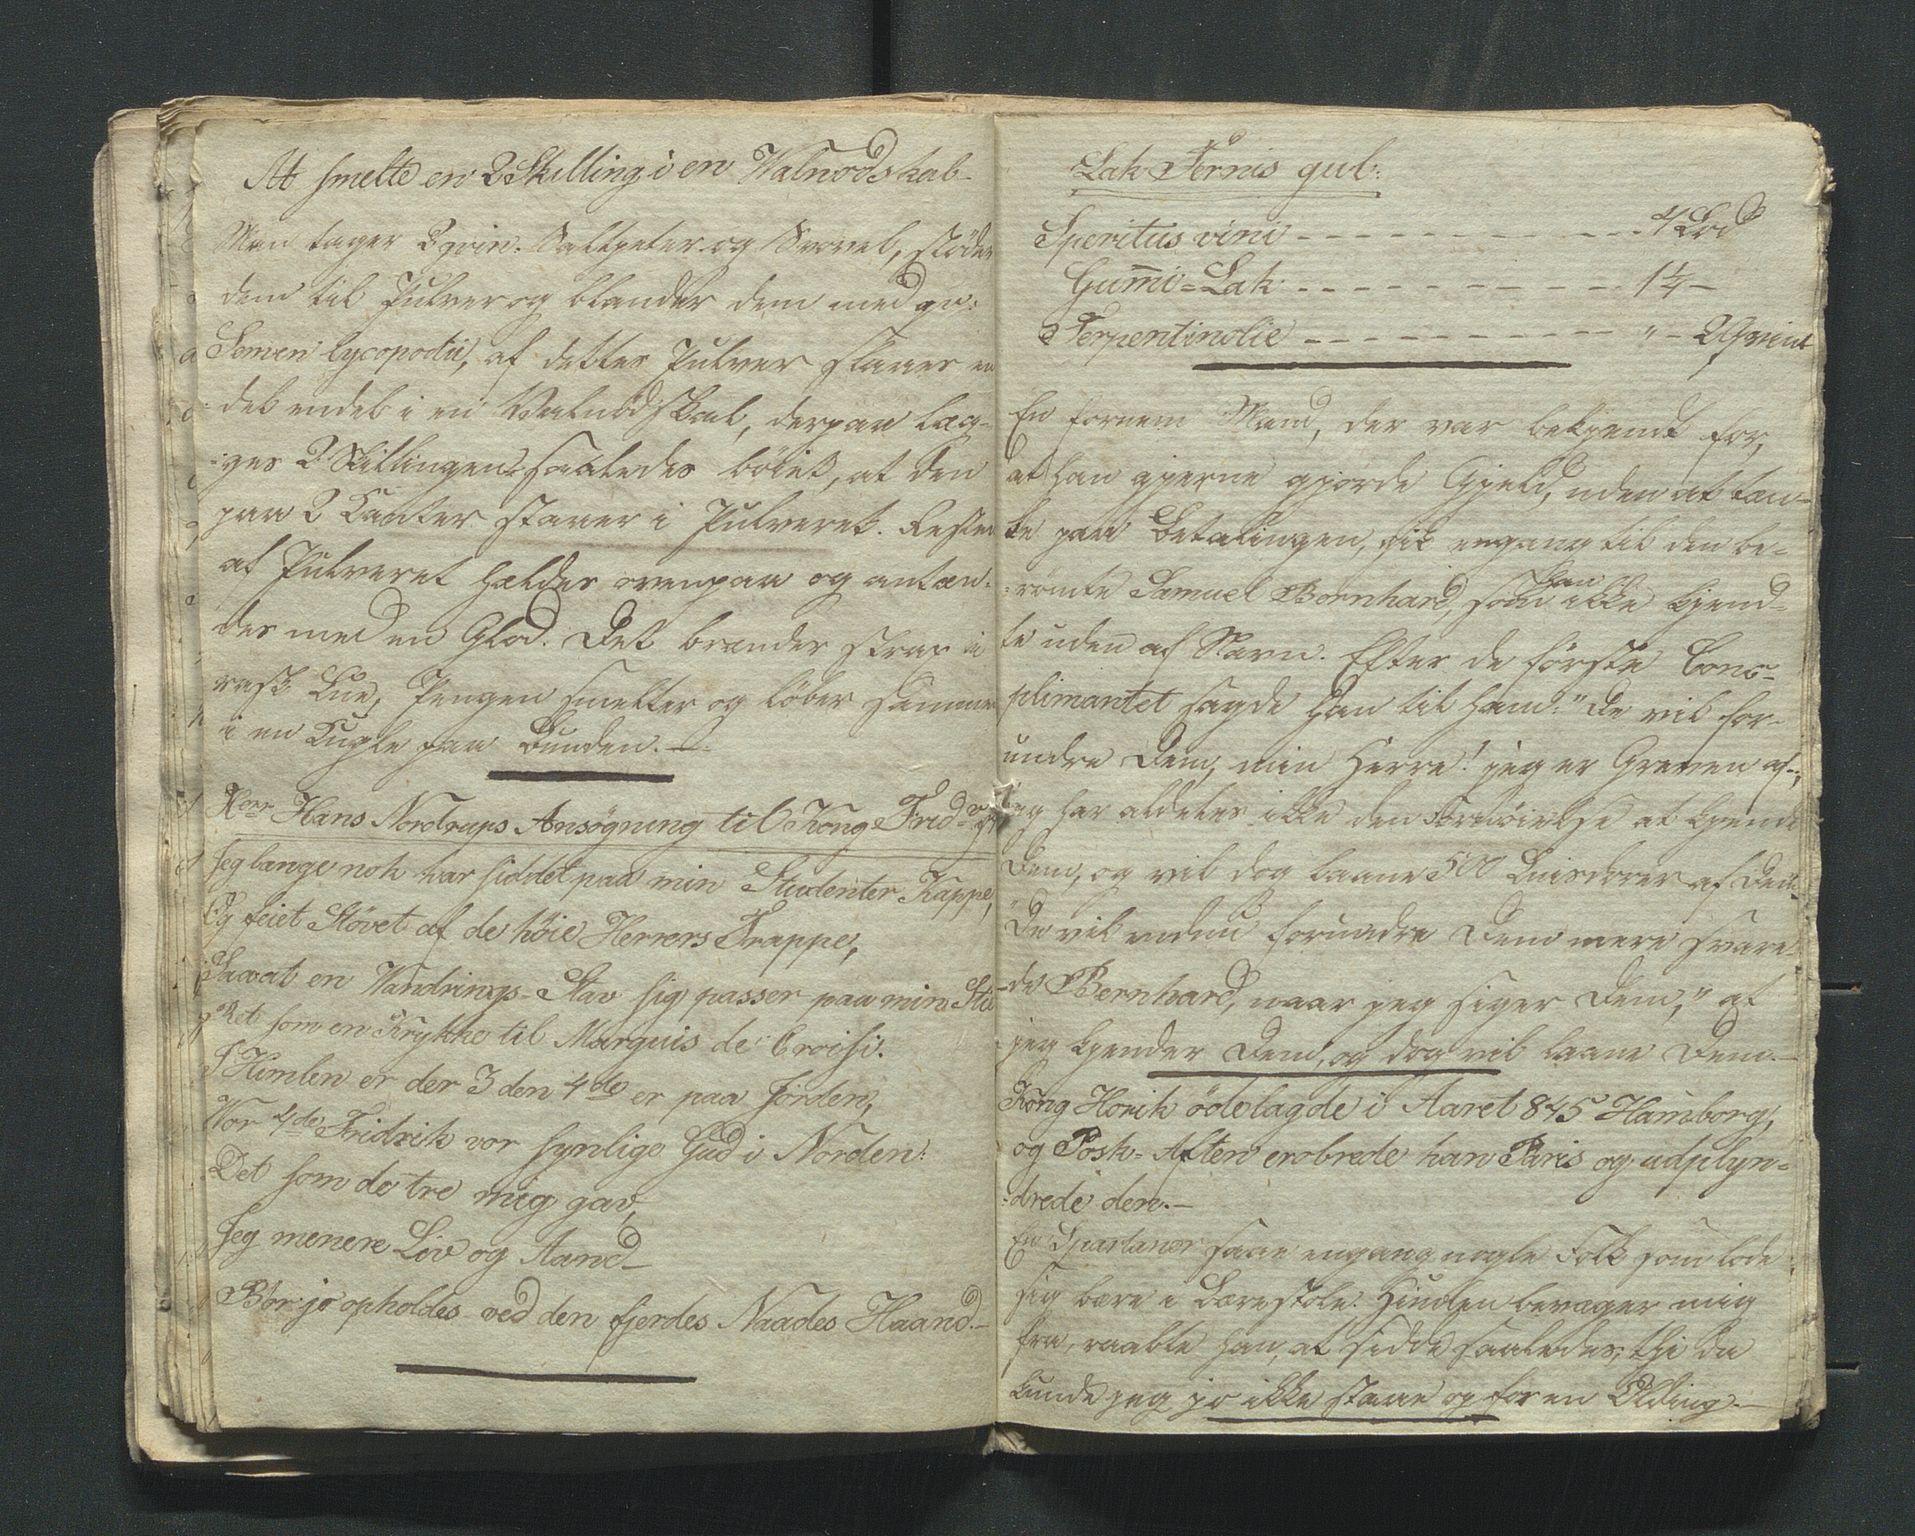 At smelte en 2 Skilling i en Valnødskal.
Man tager 2 qvin. Saltpeter og Svovel, støder
dem til Pulver og blander dem med qv:
Semen lycopodii, af dette Pulver strøes en
deel endeel i en Valnødskal, derpaa læg-
:ges 2 Skillingen saaledes bøiet, at den
paa 2 Kanter staaer i Pulveret. Resten
af Pulveret hældes ovenpaa og antæn-
des med en Glød. Det brænder strax i
rask Lue, Pengen smelter og løber sammen
i en Kugle paa Bunden.—
Herr Hans Nordrups Ansøgning til Kong Frid.
Jeg længe nok har siddet paa min Studenter Kappe,
Og feiet Støvet af de høie Herrers Trappe,
Saavat en Vandrings-Stav sig passer paa min Stie
Ret som en Krykke til Marquis de Croisi.
I Himlen er der 3 den 4de er paa Jorden,
Vor 4de Fridrik vor synlige Gud i Norden:
Det som de tre mig gav,
Jeg menere Liv og Aand—
Bør jo opholdes ved den fjerdes Naades Haand.—
Lak Fernis gul:
Speritus vini — 4 Lod
Gummi=Lak — 1¼ —
Terpentinolie — " — 2 Qvint
En fornem Mand, der var bekjendt for,
at han gjerne gjorde Gjeld, uden at tæn-
ke paa Betalingen, gik engang til den be-
:rømte Samuel Bernhard, som han ikke kjend-
te uden af Navn. Efter de første Com-
plimantet sagde han til ham: "De vil for-
undre Dem, min Herre! jeg er Greven af —,
jeg har aldeles ikke den Fornøielse at kjende
Dem, og vil dog laane 500 Luisdorer af Dem.
"De vil endnu forundre Dem mere svare-
de Bernhard, naar jeg siger Dem," at
jeg kjender Dem, og dog vil laane Dem.—
Kong Horik ødelagde i Aaret 845 Hamborg,
og Posk-Aften erobrede han Paris og udplyn-
:drede den.—
En Spartaner saae engang nogle Folk som lode
sig bære i Bærestole. Himlen bevager mig
fra, raabte han, at sidde saaledes; thi da
kunde jeg jo ikke staae op for en Olding.—